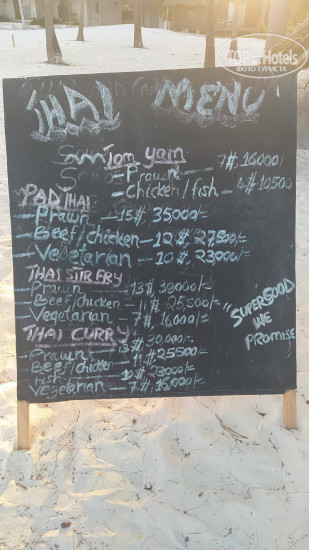 TopHotels
ФОТО ТУРИСТА
THAI MENU
Tom yam
- Prawn 7$, 16000/
- Chicken/fish - 4$ 10500
PAD THAI
- Prawn - 15$, 35000/-
- Beef/chicken - 12$, 27,500/-
- Vegetarian - 10$, 23000/-
THAI STIR FRY
- Prawn - 13$ 30000/-
- Beef/chicken - 11$ 25,500/-
- Vegetarian - 7$, 16000/-
THAI CURRY
- Prawn - 13$ 30,000/-
- Beef/chicken - 11$ 25500/-
- Fish - 10$ 23000/-
- Vegetarian - 7$, 16,000/-
"SUPERGOOD
WE
PROMISE"